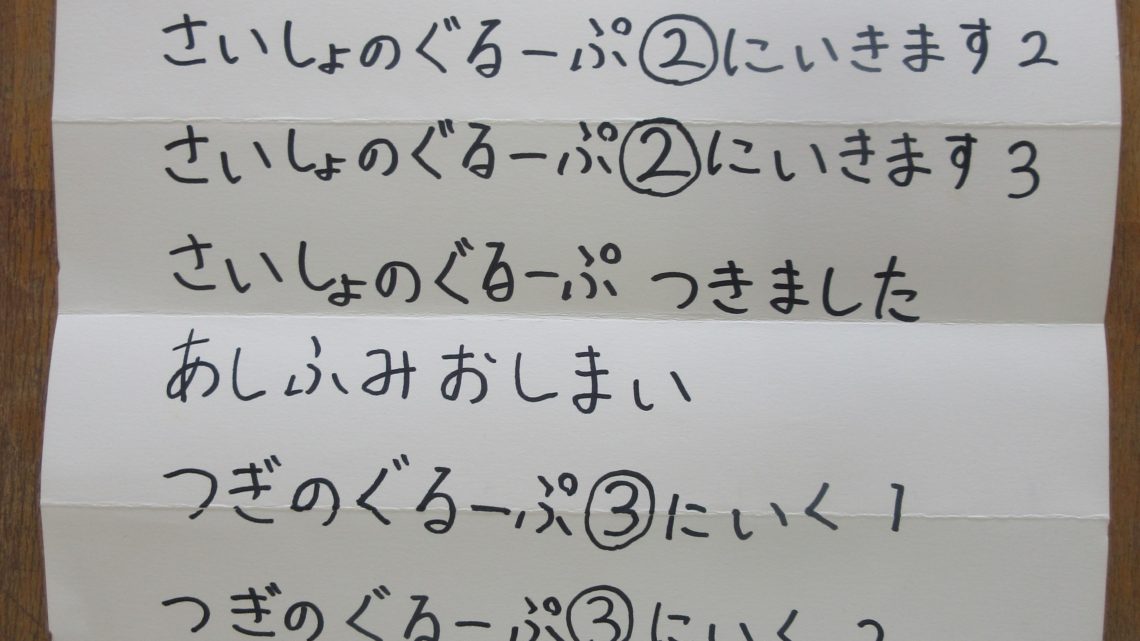 さいしょのぐるーぷ②にいきます2
さいしょのぐるーぷ②にいきます3
さいしょのぐるーぷ つきました
あしふみおしまい
つぎのぐるーぷ③にいく 1
つぎのぐるーぷ③にいく 2